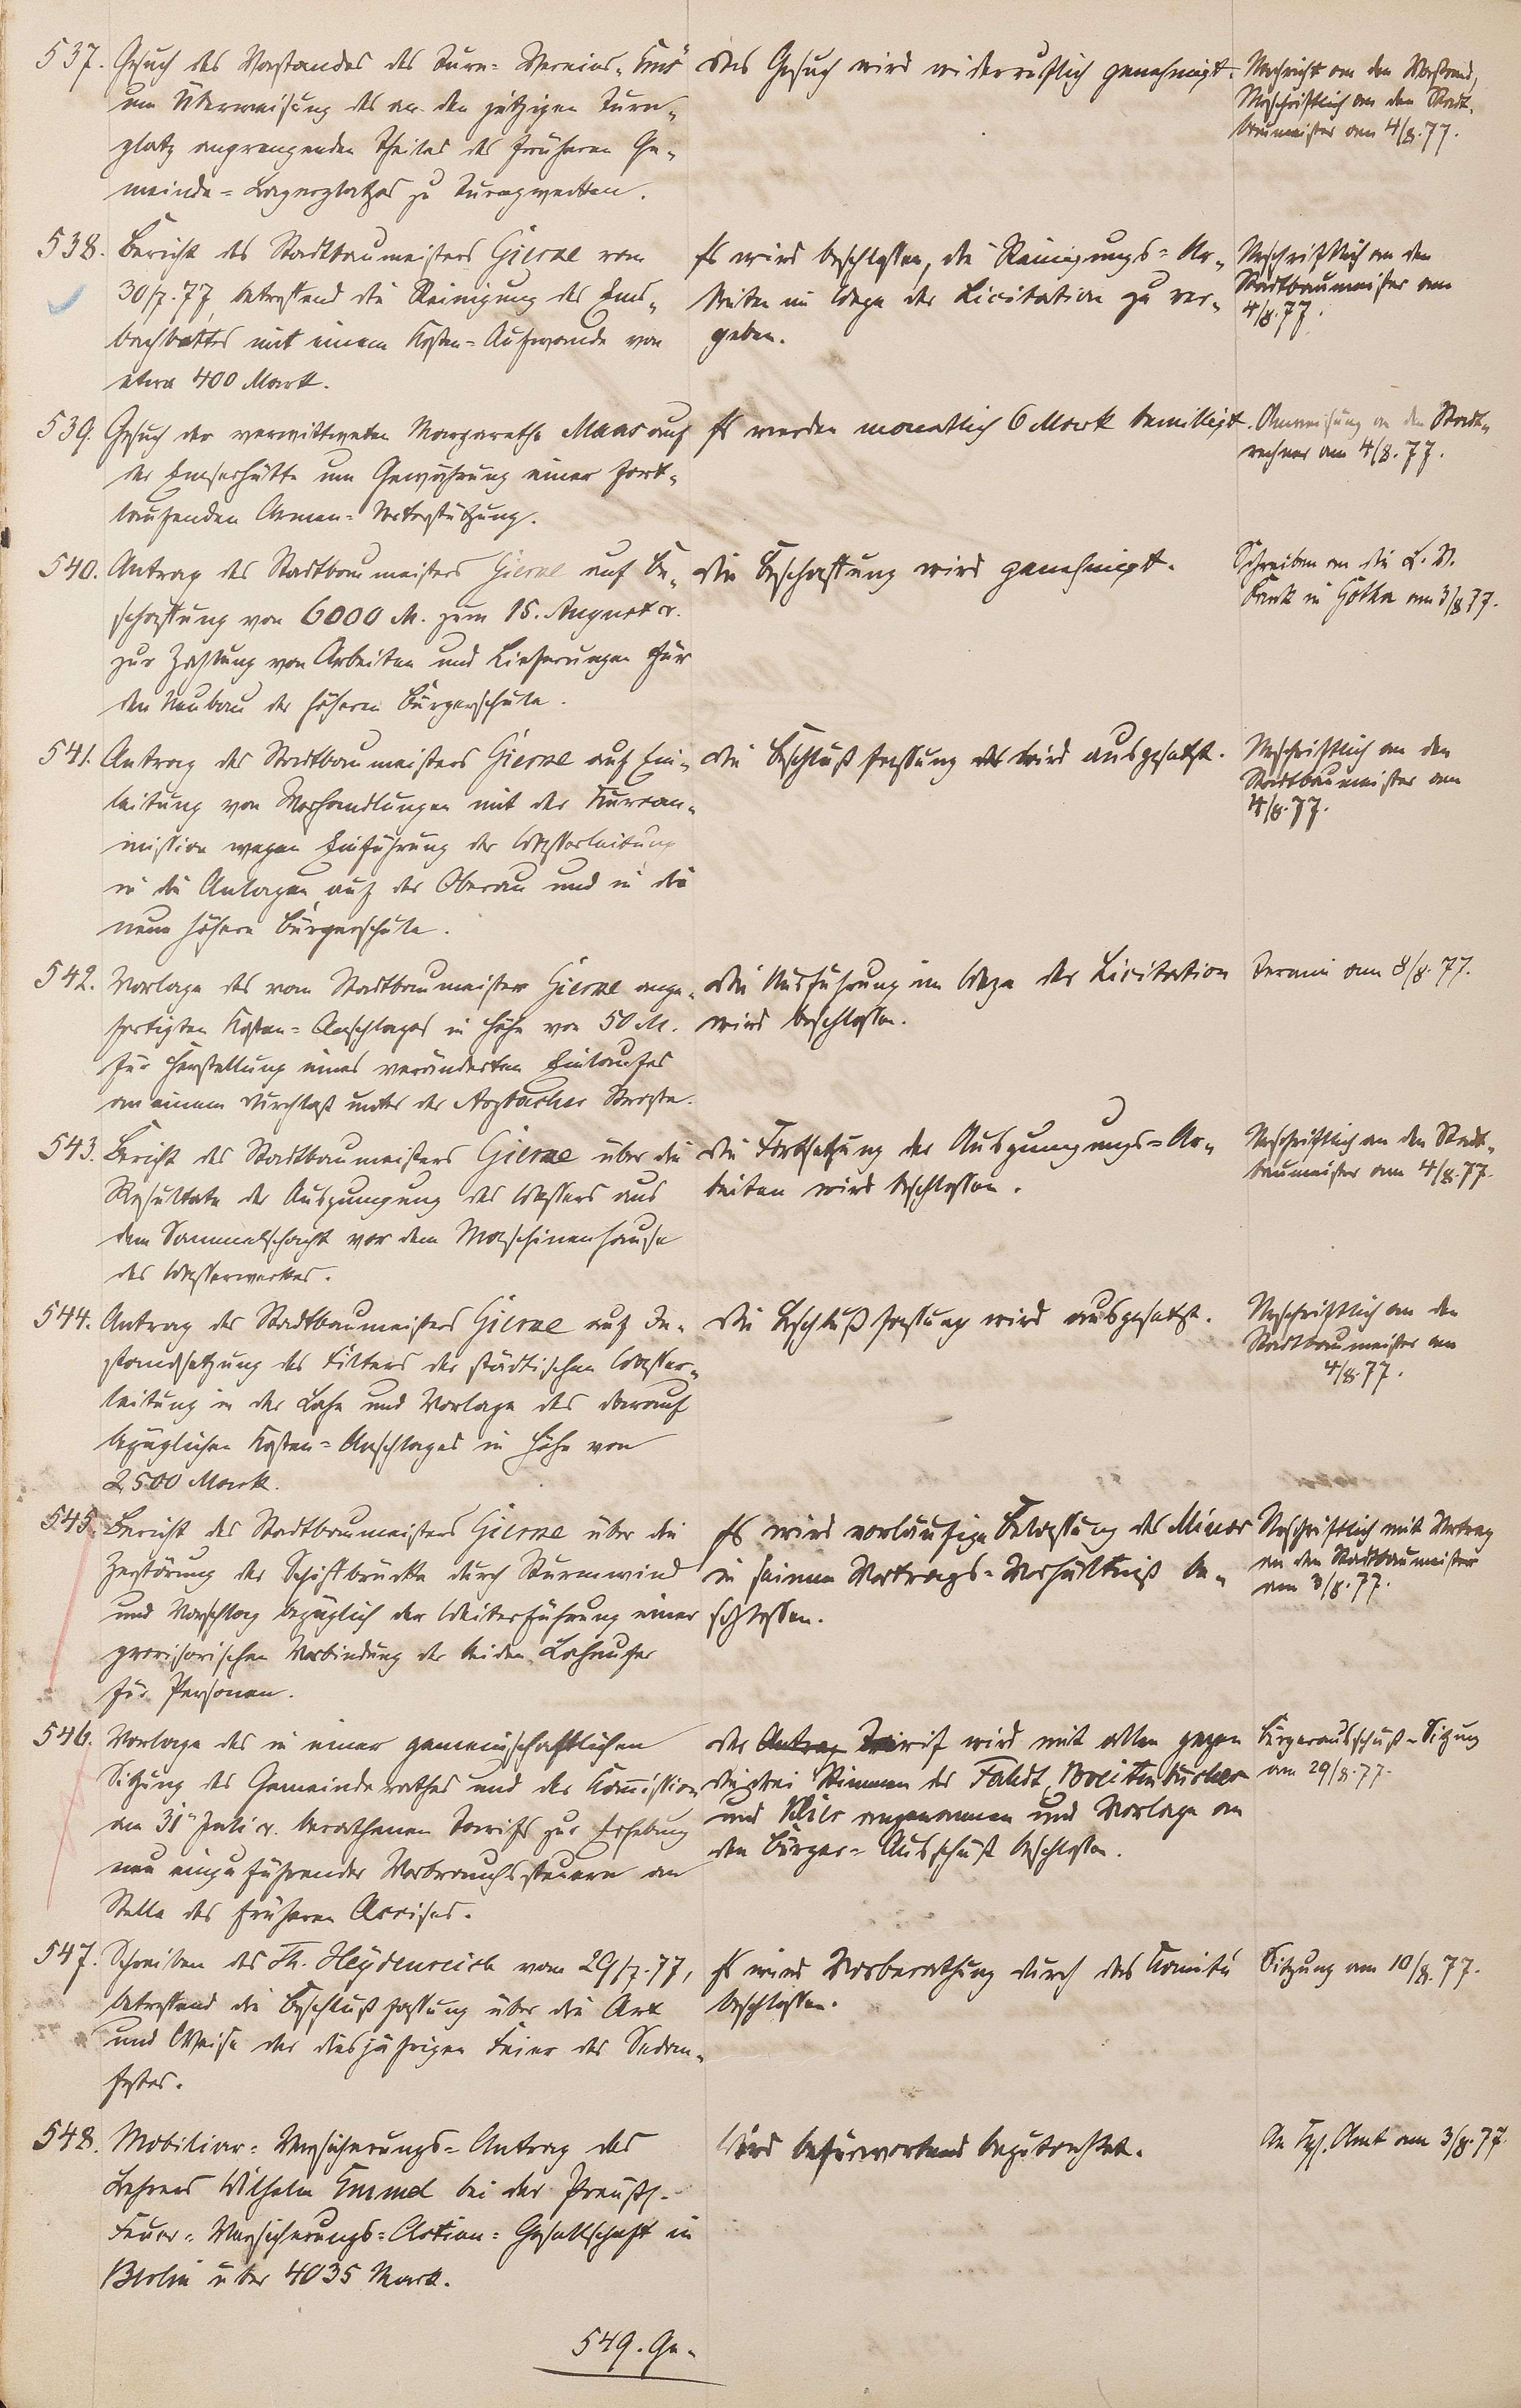 537. Gesuch des Vorstandes des Turn-Vereins „Ems“
um Überweisung des an den jetzigen Turn-
platz angrenzenden Theiles des früheren Ge-
meinde-Lagerplatzes zu Turnzwecken.
Das Gesuch wird widerruflich genehmigt.
Nachricht an den Vorstand,
Abschriftlich an den Stadt-
baumeister am 4/8.77.
538. Bericht des Stadtbaumeisters Gierse vom
30/7.77, betreffend die Reinigung des Ems-
bachbettes mit einem Kosten-Aufwande von
etwa 400 Mark.
Es wird beschlossen, die Reinigungs-Ar-
beiten im Wege der Licitation zu ver-
geben.
Abschriftlich an den
Stadtbaumeister am
4/8.77.
539. Gesuch der verwittweten Margarethe Maas auf
der Emserhütte um Gewährung einer fort-
laufenden Armen-Unterstützung.
Es werden monatlich 6 Mark bewilligt.
Anweisung an den Stadt-
rechner am 4/8.77.
540. Antrag des Stadtbaumeisters Gierse auf Be-
schaffung von 6000 M. zum 15. August cr.
zur Zahlung von Arbeiten und Lieferungen für
den Neubau der höheren Bürgerschule.
Die Beschaffung wird genehmigt.
Schreiben an die
Bank in Gotha am 3/8.77.
541. Antrag des Stadtbaumeisters Gierse auf Ein-
leitung von Verhandlungen mit der Kurcom-
mission wegen Einführung der Wasserleitung
in die Anlagen auf der Oberau und in die
neue höhere Bürgerschule.
Die Beschlußfassung wird ausgesetzt.
Abschriftlich an den
Stadtbaumeister am
4/8.77.
542. Vorlage des vom Stadtbaumeister Gierse ange-
fertigten Kosten-Anschlages in Höhe von 50 M.
für Herstellung eines veränderten Einlaufes
an einem Durchlaß unter der Arzbacher Strasse.
Die Ausführung im Wege der Licitation
wird beschlossen.
Termin am 8/8.77.
543. Bericht des Stadtbaumeisters Gierse über die
Resultate der Auspumpung des Wassers aus
dem Sammelschacht vor dem Maschinenhause
des Wasserwerkes.
Die Fortsetzung der Auspumpungs-Ar-
beiten wird beschlossen.
Abschriftlich an den Stadt-
baumeister am 4/8.77.
544. Antrag des Stadtbaumeisters Gierse auf In-
standsetzung des Filters der städtischen Wasser-
leitung in der Lahn und Vorlage des darauf
bezüglichen Kosten-Anschlages in Höhe von
2500 Mark.
Die Beschlußfassung wird ausgesetzt.
Abschriftlich an den
Stadtbaumeister am
4/8.77.
545. Bericht des Stadtbaumeisters Gierse über die
Zerstörung der Schiffbrücke durch Sturmwind
und Vorschlag bezüglich der Weiterführung einer
provisorischen Verbindung der beiden Lahnufer
für Personen.
Es wird vorläufige Belassung des Minor
in seinem Vertrags-Verhältniß be-
schlossen.
Abschriftlich mit Vertrag
an den Stadtbaumeister
am 3/8.77.
546. Vorlage des in einer gemeinschaftlichen
Sitzung des Gemeinderathes und der Kommission
am 31ten Juli cr. berathenen Tarifs zur Erhebung
neu einzuführender Verbrauchssteuern an
Stelle des früheren Accises.
Der Antrag Tarif wird mit allen gegen
die drei Stimmen der Fahdt, Breitenbücher
und angenommen und Vorlage an
den Bürger-Ausschuß beschlossen.
Bürgerausschuß-Sitzung
am 29/8.77.
547. Schreiben des Th. Heydenreich vom 29/7.77,
betreffend die Beschlußfassung über die Art
und Weise der diesjährigen Feier des Sedan-
festes.
Es wird Vorberathung durch das Comité
beschlossen.
Sitzung am 10/8.77.
548. Mobiliar-Versicherungs-Antrag des
Lehrers Wilhelm Emmel bei der Preuß.
Feuer-Versicherungs-Actien-Gesellschaft in
Berlin über 4035 Mark.
Wird befürwortend begutachtet.
An Kgl. Amt am 3/8.77.
549. Ge-